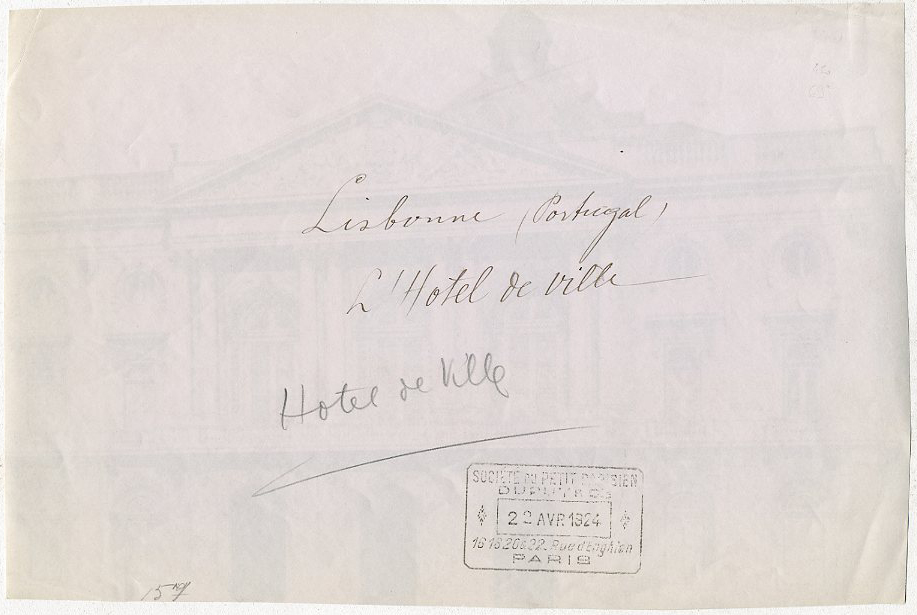 Lisbonne (Portugal)
L'Hotel de ville
Hotel de Ville
SOCIÉTÉ DU PETIT PARISIEN
DUPUY & Cie
22 AVR 1924
16.18.20 & 22. Rue d'Enghien
PARIS